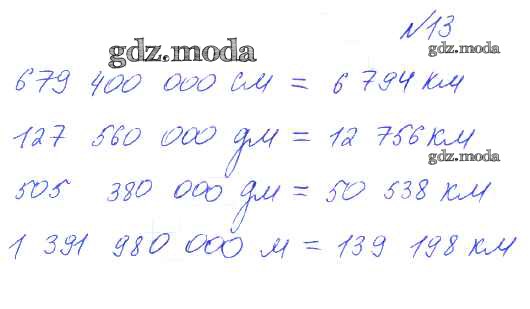 №13
gdz.moda
gdz.moda
679 400 000 см = 6 794 км
127 560 000 дм = 12 756 км
gdz.moda
505 380 000 дм = 50 538 км
1 391 980 000 м = 139 198 км